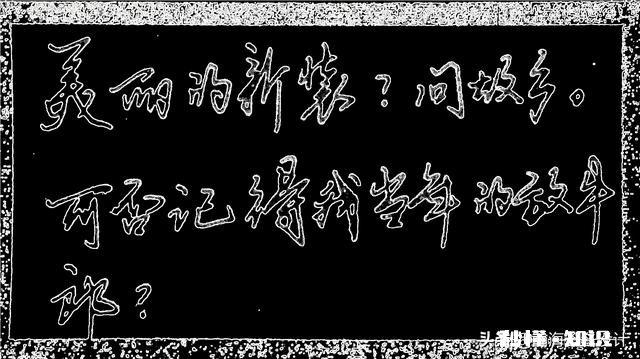 美丽的新装？问故乡。
可否记得我当年的放牛
郎？
秒懂知识